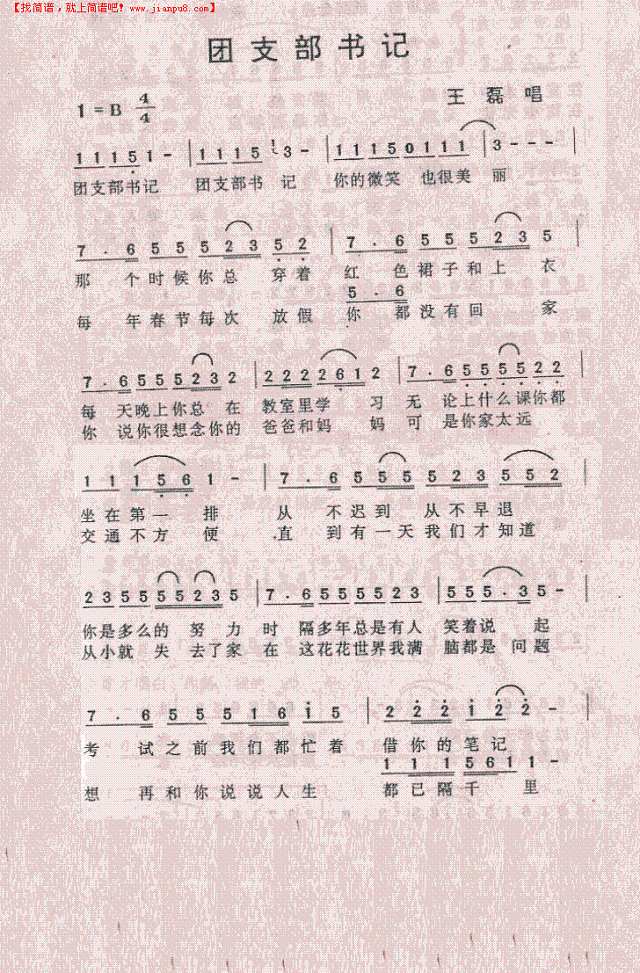 【找简谱，就上简谱吧! www.jianpu8.com】
团支部书记
1=B 4/4
王磊 唱
1 1 1 5 1 - | 1 1 1 5 1 3 - | 1 1 1 5 0 1 1 1 | 3 - - -
团支部书记 团支部书 记 你的微笑 也很美 丽
7 . 6 5 5 5 2 3 5 2 | 7 . 6 5 5 5 5 2 3 5
那 个时候你总 穿着 红 色裙子和上 衣
5 . 6
每 年春节每次 放假 你 都没有回 家
7 . 6 5 5 5 2 3 2 | 2 2 2 2 6 1 2 | 7 . 6 5 5 5 5 2 2
每 天晚上你总 在 教室里学 习 无 论上什么课你都
你 说你很想念你的 爸爸和妈 妈 可 是你家太远
1 1 1 5 6 1 - | 7 . 6 5 5 5 5 2 3 5 5 2 |
坐在第一 排 从 不迟到 从不早退
交通不方 便 直 到有一天我们才知道
2 3 5 5 5 5 2 3 5 | 7 . 6 5 5 5 5 2 3 5 5 5 . 3 5 - |
你是多么的 努 力 时 隔多年总是有人 笑着说 起
从小就 失 去了家 在 这花花世界我满 脑都是 问题
7 . 6 5 5 5 1 6 1 5 | 2 2 2 1 2 2 - |
考 试之前我们都忙着 借你的笔记
1 1 1 5 6 1 1 -
想 再和你说说人生 都已隔千 里